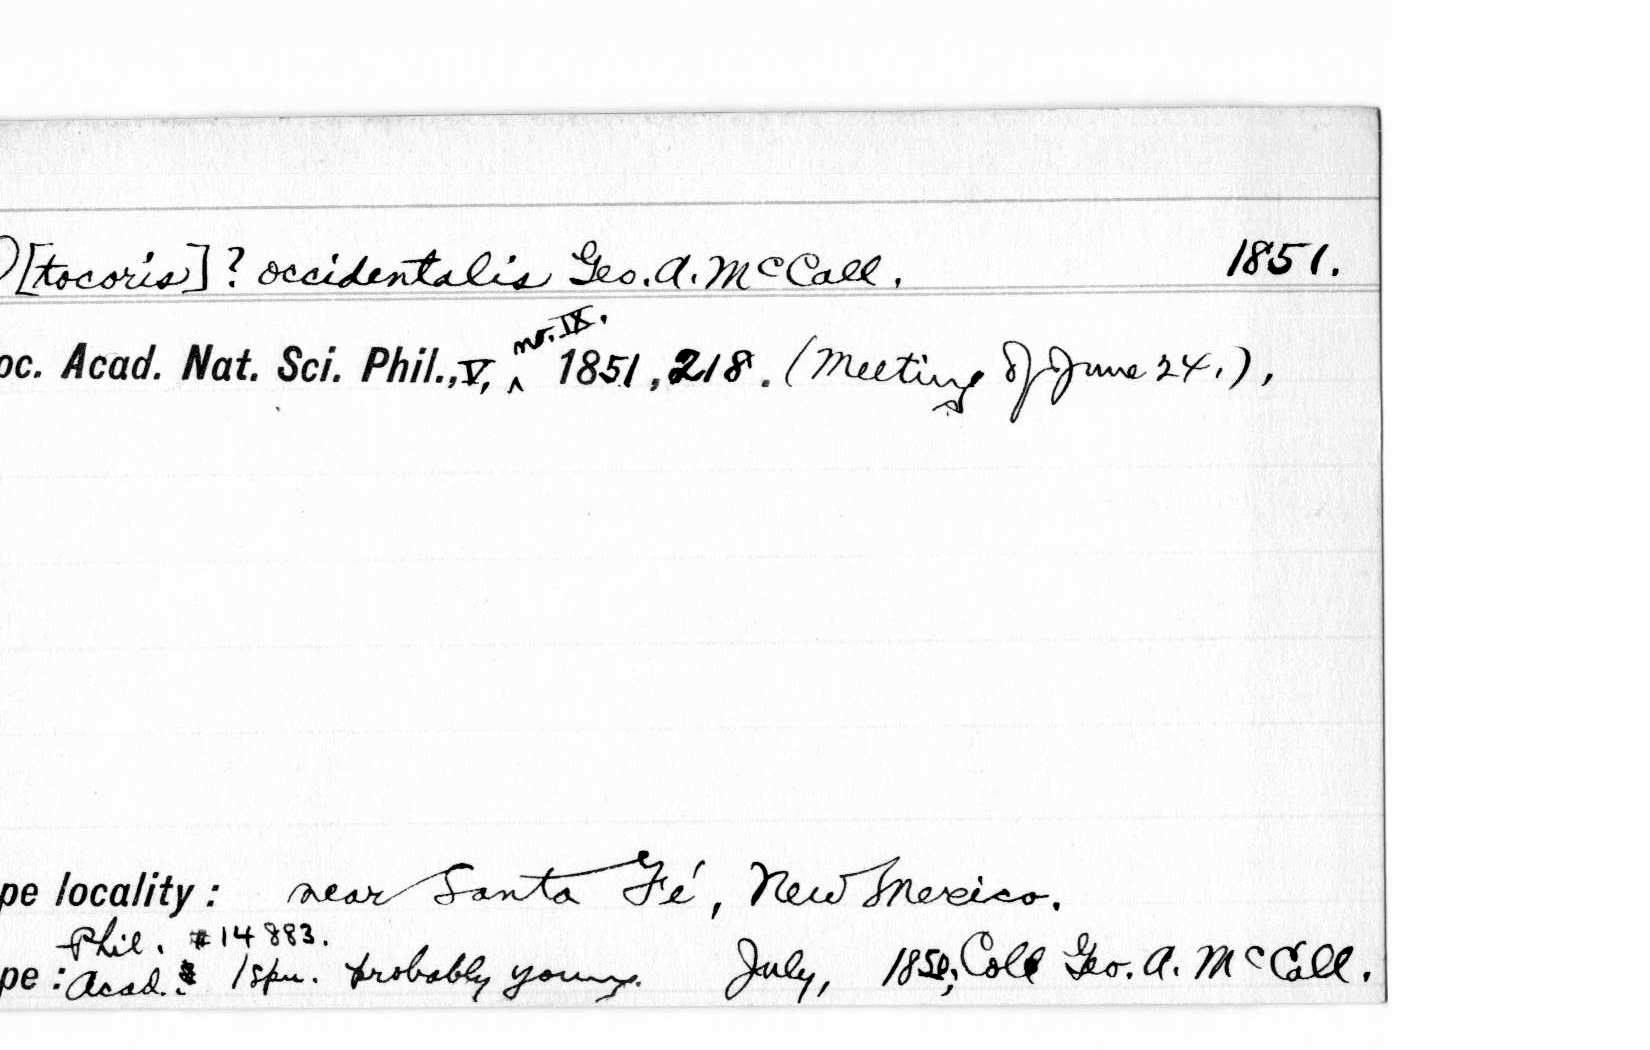 )[tocoris]? occidentalis Geo. A. McCall. 1851.
no. IX.
oc. Acad. Nat. Sci. Phil., V, ^ 1851, 218. (Meeting of June 24.),
pe locality: near Santa Fé, New Mexico.
Phil. #14883.
pe: Acad. 1 spm. probably young. July, 1850, Coll Geo. A. McCall.